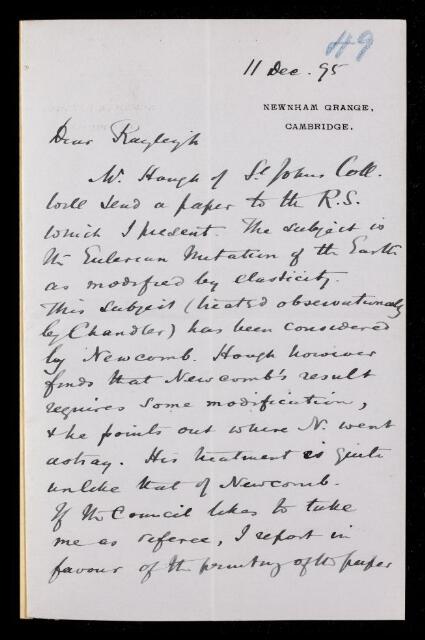 49
11 Dec. 95
NEWNHAM GRANGE,
CAMBRIDGE.
Dear Rayleigh
Mr Hough of St Johns Coll.
will send a paper to the R.S.
which I present. The subject is
the Eulerian Nutation of the Earth
as modified by elasticity.
This subject (treated observationally
by Chandler) has been considered
by Newcomb. Hough however
finds that Newcomb's result
requires some modification,
& he points out where N. went
astray. His treatment is quite
unlike that of Newcomb.
If the Council likes to take
me as referee, I report in
favour of the printing of the paper